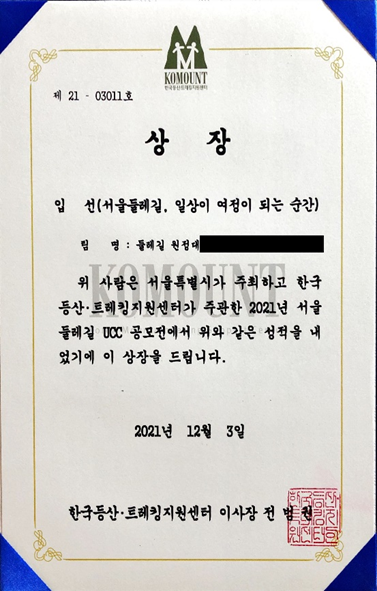 KOMOUNT
한국등산·트레킹지원센터
제 21 - 03011호
상 장
입 선(서울둘레길, 일상이 여정이 되는 순간)
팀 명 : 둘레길 원정대
위 사람은 서울특별시가 주최하고 한국
등산·트레킹지원센터가 주관한 2021년 서울
둘레길 UCC 공모전에서 위와 같은 성적을 내
었기에 이 상장을 드립니다.
KOMOUNT
2021년 12월 3일
한국등산·트레킹지원센터 이사장 전 범 권